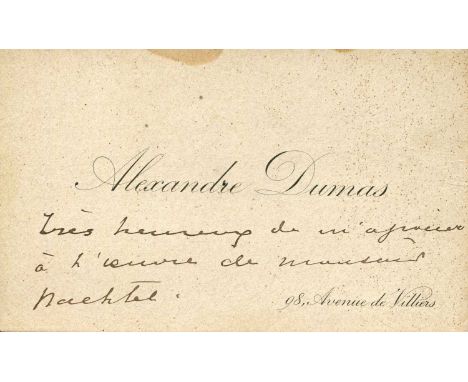 Alexandre Dumas
Très heureux de m'associer
à l'œuvre de monsieur
98, Avenue de Villiers